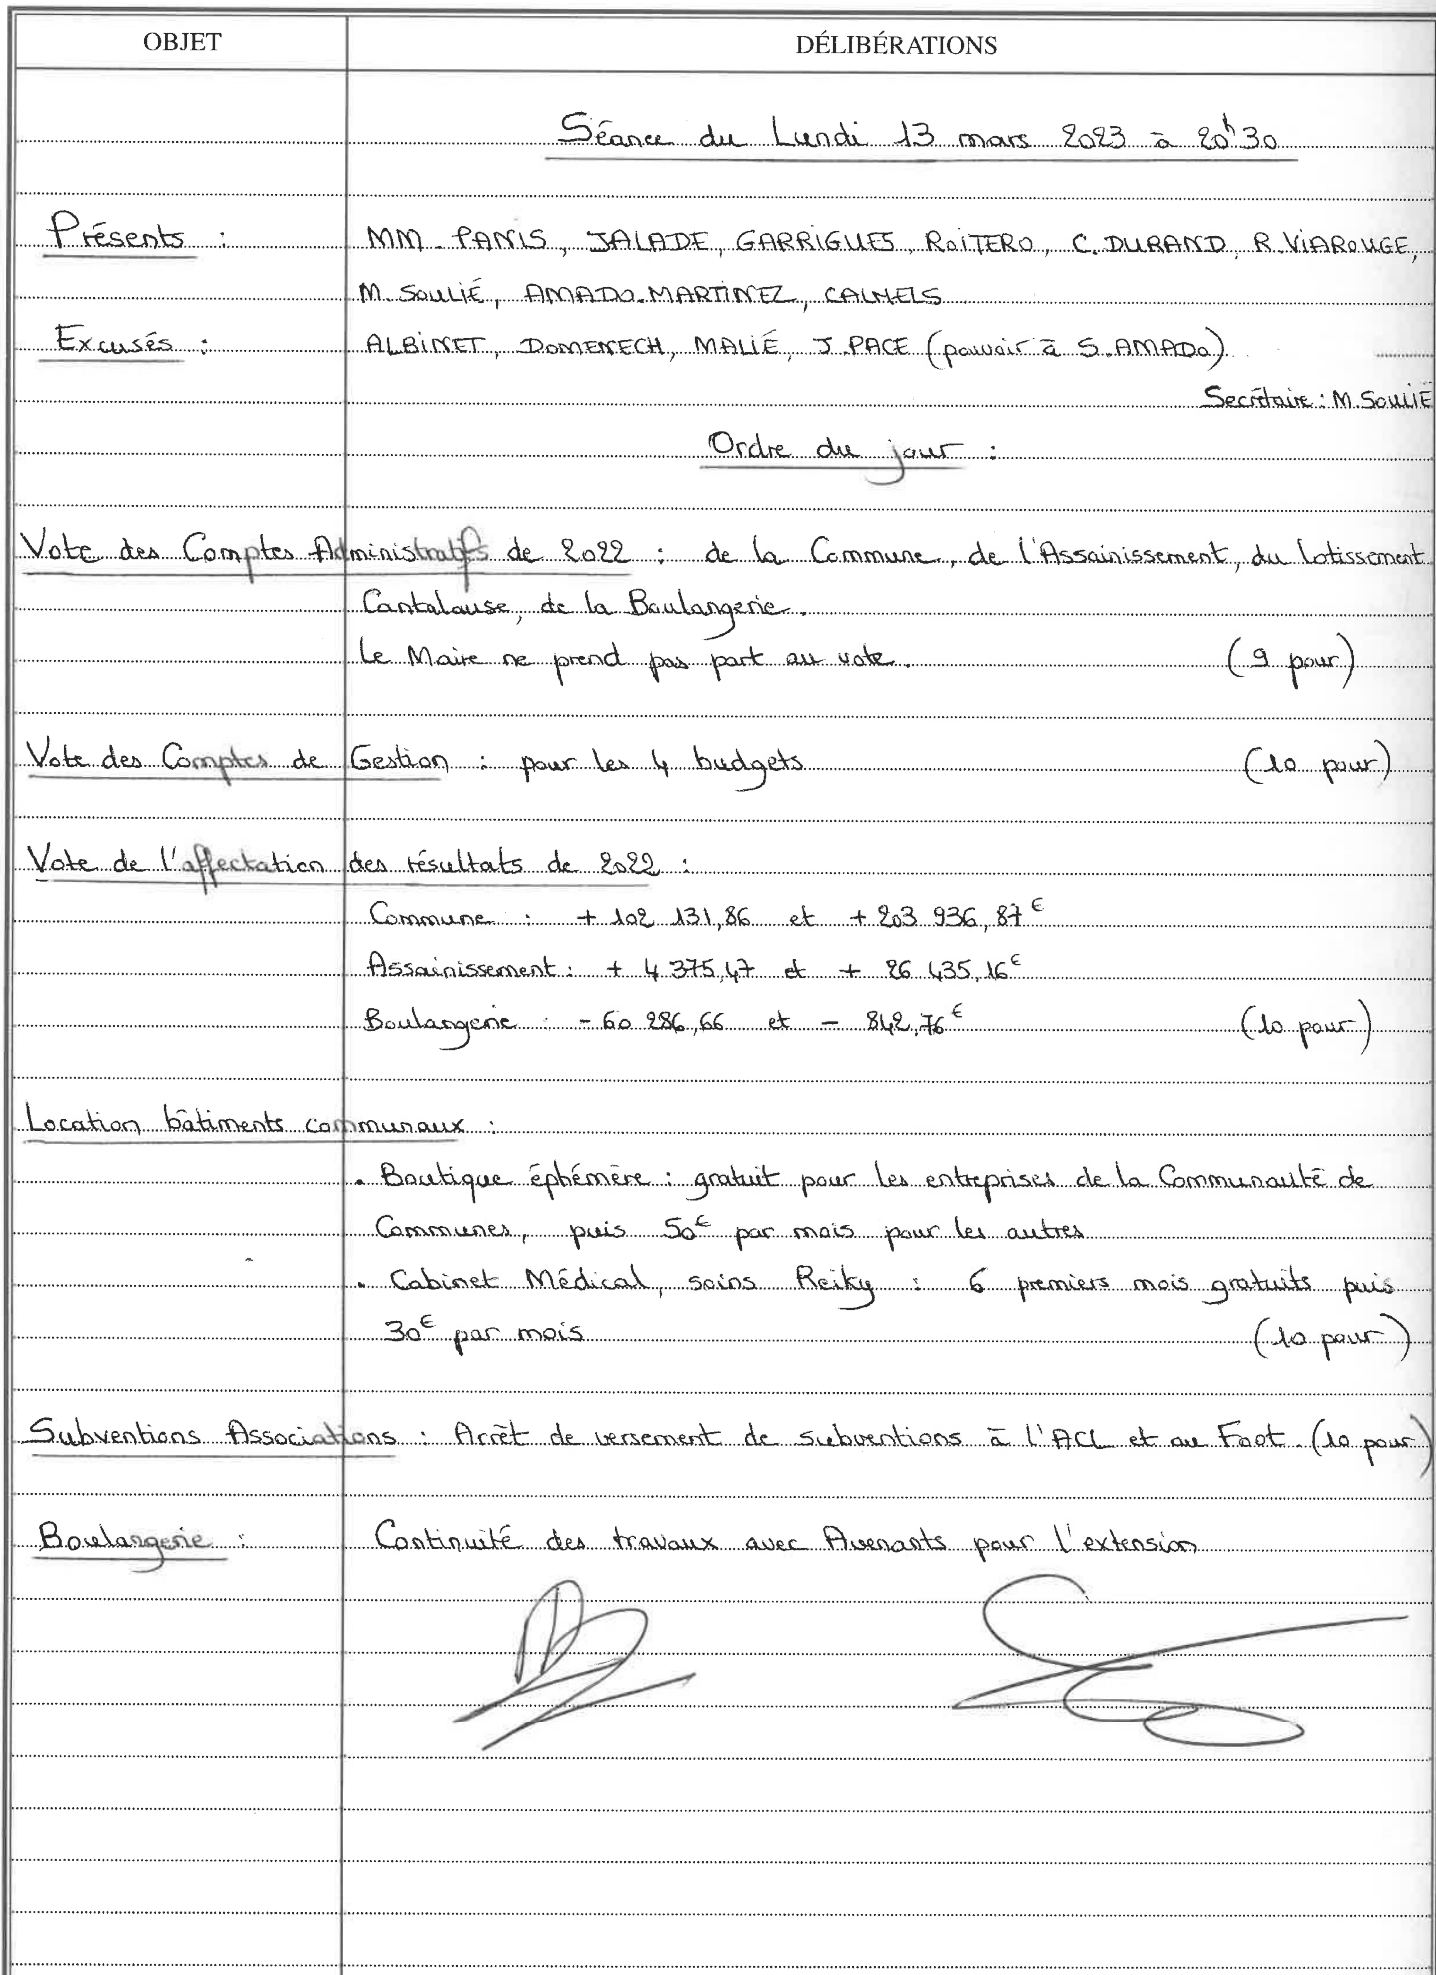 OBJET DÉLIBÉRATIONS
Séance du Lundi 13 mars 2023 à 20h30
Présents : MM. PANIS, JALADE, GARRIGUES, ROITERO, C. DURAND, R. VIAROUGE,
M. SOULIÉ, AMADO-MARTINEZ, CALMELS
Excusés : ALBINET, DOMENECH, MALIÉ, J. PACE (pouvoir à S. AMADO)
Secrétaire : M. SOULIÉ
Ordre du jour :
Vote des Comptes Administratifs de 2022 : de la Commune, de l'Assainissement, du Lotissement
Cantalause, de la Boulangerie.
Le Maire ne prend pas part au vote. (9 pour)
Vote des Comptes de Gestion : pour les 4 budgets (10 pour)
Vote de l'affectation des résultats de 2022 :
Commune : + 102 131,86 et + 203 936,87€
Assainissement : + 4 375,47 et + 26 435,16€
Boulangerie : - 60 286,66 et - 842,76€ (10 pour)
Location bâtiments communaux :
. Boutique éphémère : gratuit pour les entreprises de la Communauté de
Communes, puis 50€ par mois pour les autres
. Cabinet Médical, soins Reiky : 6 premiers mois gratuits puis
30€ par mois (10 pour)
Subventions Associations : Arrêt de versement de subventions à l'ACL et au Foot. (10 pour)
Boulangerie : Continuité des travaux avec Avenants pour l'extension